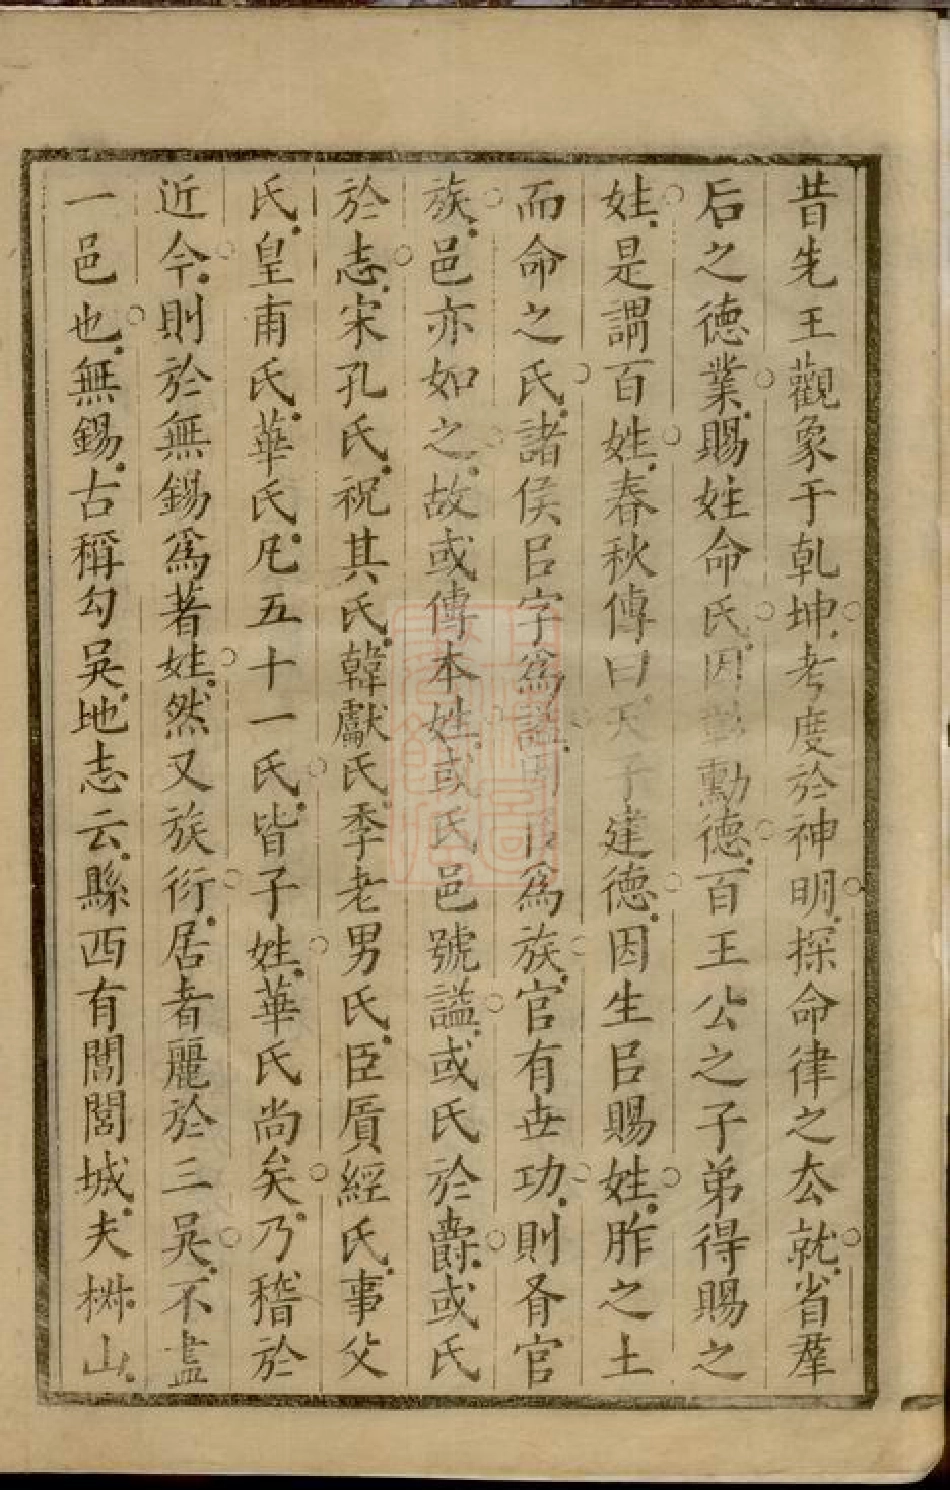 昔先王觀象于乹坤考度於神明探命律之厺就省羣
后之德業賜姓命氏因彰勳德百王公之子弟得賜之
姓是謂百姓春秋傳曰天子建德因生㠯賜姓胙之土
而命之氏諸侯㠯字爲謚因㠯爲族官有世功則有官
族邑亦如之故或傳本姓或氏邑號謚或氏於爵或氏
於志宋孔氏祝其氏韓獻氏季老男氏臣㕓經氏事父
氏皇甫氏華氏凡五十一氏皆子姓華氏尚矣乃稽於
近今則於無錫爲著姓然又族衍居者麗於三吳不盡
一邑也無錫古稱勾吳地志云縣西有閭閭城夫椒山